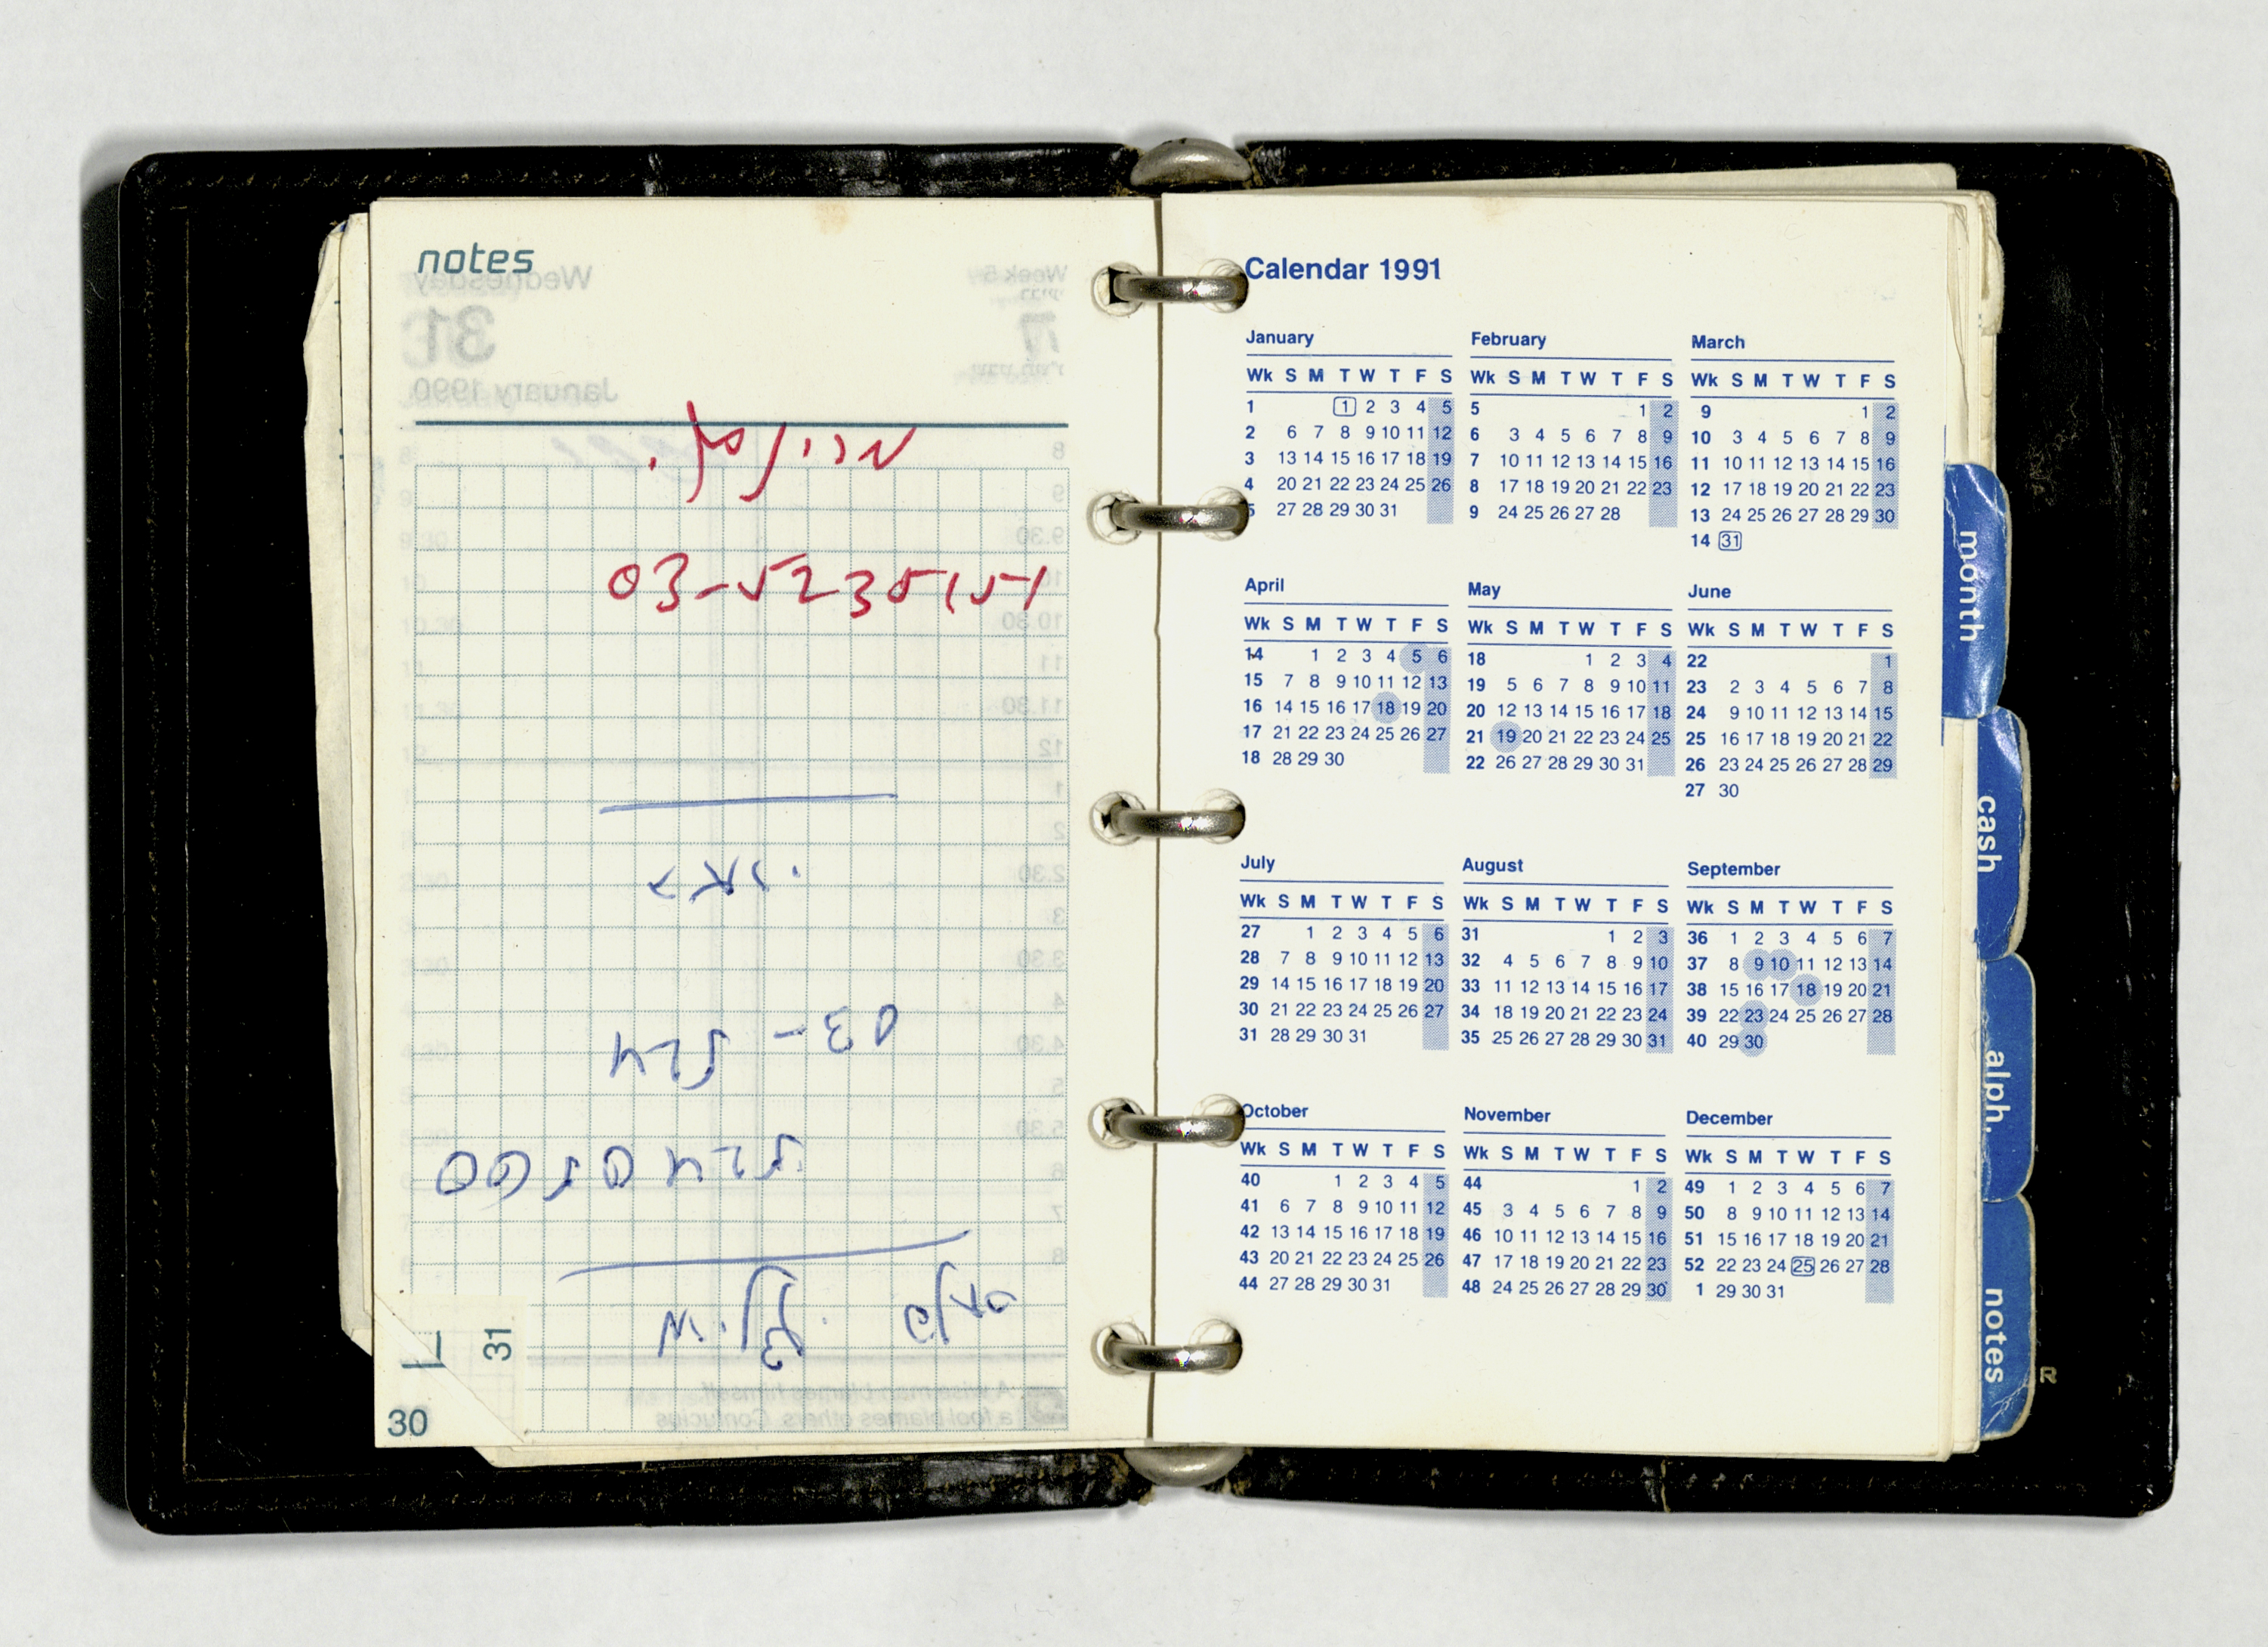 notes
03-5235151
03-524
5240560
31
30
Calendar 1991
January February March
Wk S M T W T F S Wk S M T W T F S Wk S M T W T F S
1 1 2 3 4 5 5 1 2 9 1 2
2 6 7 8 9 10 11 12 6 3 4 5 6 7 8 9 10 3 4 5 6 7 8 9
3 13 14 15 16 17 18 19 7 10 11 12 13 14 15 16 11 10 11 12 13 14 15 16
4 20 21 22 23 24 25 26 8 17 18 19 20 21 22 23 12 17 18 19 20 21 22 23
5 27 28 29 30 31 9 24 25 26 27 28 13 24 25 26 27 28 29 30
14 31
April May June
Wk S M T W T F S Wk S M T W T F S Wk S M T W T F S
14 1 2 3 4 5 6 18 1 2 3 4 22 1
15 7 8 9 10 11 12 13 19 5 6 7 8 9 10 11 23 2 3 4 5 6 7 8
16 14 15 16 17 18 19 20 20 12 13 14 15 16 17 18 24 9 10 11 12 13 14 15
17 21 22 23 24 25 26 27 21 19 20 21 22 23 24 25 25 16 17 18 19 20 21 22
18 28 29 30 22 26 27 28 29 30 31 26 23 24 25 26 27 28 29
27 30
July August September
Wk S M T W T F S Wk S M T W T F S Wk S M T W T F S
27 1 2 3 4 5 6 31 1 2 3 36 1 2 3 4 5 6 7
28 7 8 9 10 11 12 13 32 4 5 6 7 8 9 10 37 8 9 10 11 12 13 14
29 14 15 16 17 18 19 20 33 11 12 13 14 15 16 17 38 15 16 17 18 19 20 21
30 21 22 23 24 25 26 27 34 18 19 20 21 22 23 24 39 22 23 24 25 26 27 28
31 28 29 30 31 35 25 26 27 28 29 30 31 40 29 30
October November December
Wk S M T W T F S Wk S M T W T F S Wk S M T W T F S
40 1 2 3 4 5 44 1 2 49 1 2 3 4 5 6 7
41 6 7 8 9 10 11 12 45 3 4 5 6 7 8 9 50 8 9 10 11 12 13 14
42 13 14 15 16 17 18 19 46 10 11 12 13 14 15 16 51 15 16 17 18 19 20 21
43 20 21 22 23 24 25 26 47 17 18 19 20 21 22 23 52 22 23 24 25 26 27 28
44 27 28 29 30 31 48 24 25 26 27 28 29 30 1 29 30 31
month
cash
alph.
notes